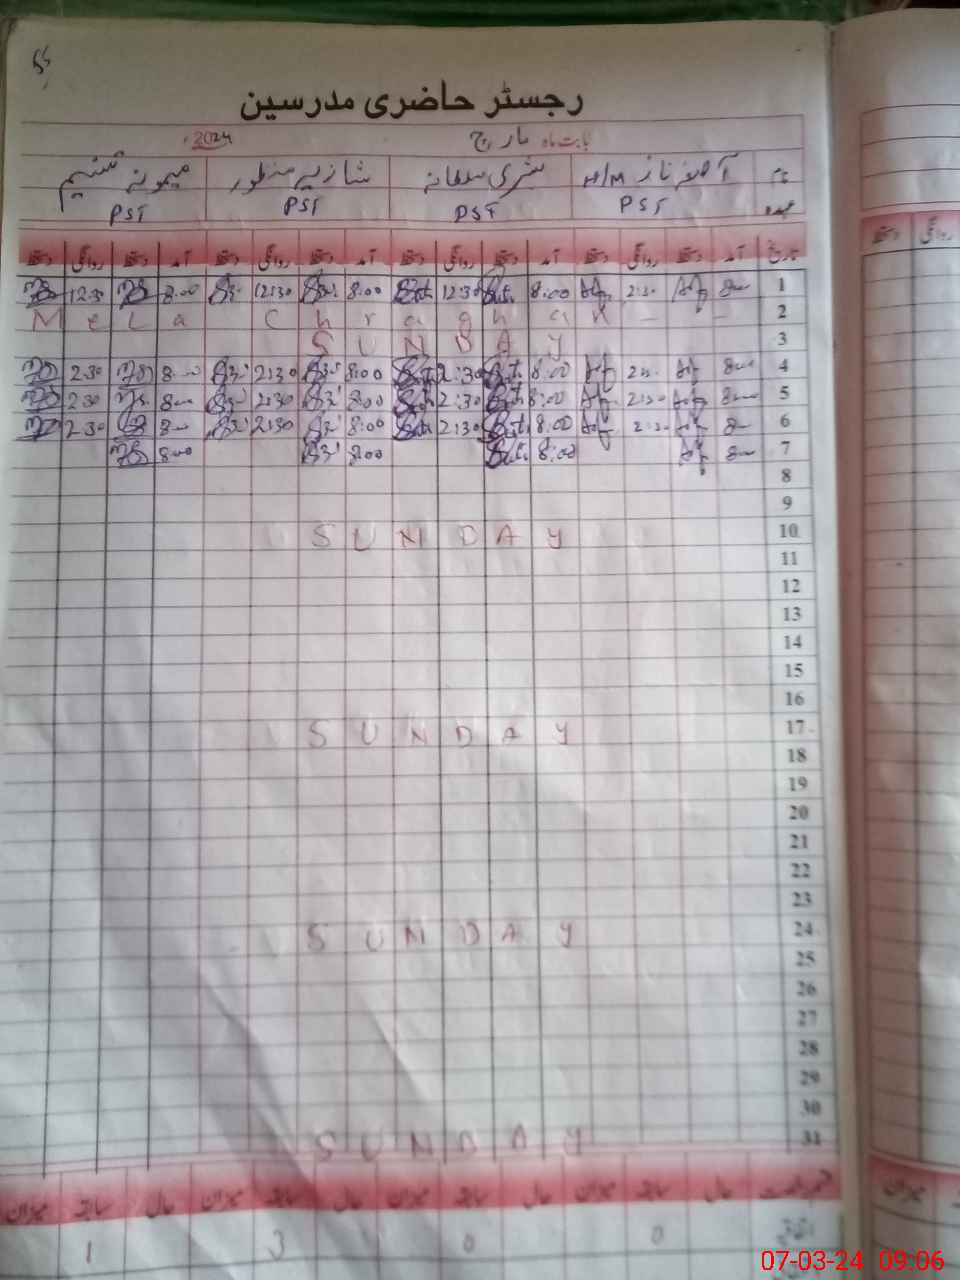 رجسٹر حاضری مدرسین
بابت ماہ مارچ 2024ء
نام آصفہ ناز H/M بشریٰ سلطانہ شازیہ منظور میمونہ تسنیم
عہدہ PST PST PST PST
تاریخ آمد دستخط روانگی دستخط آمد دستخط روانگی دستخط آمد دستخط روانگی دستخط آمد دستخط روانگی دستخط
1 8:00 2:30 8:00 12:30 8:00 12:30 8:00 12:30
2 Mela Chraghan - -
3 SUNDAY
4 8:00 2:30 8:00 2:30 8:00 2:30 8:00 2:30
5 8:00 2:30 8:00 2:30 8:00 2:30 8:00 2:30
6 8:00 2:30 8:00 2:30 8:00 2:30 8:00 2:30
7 8:00 8:00 8:00 8:00
8
9
10 SUNDAY
11
12
13
14
15
16
17 SUNDAY
18
19
20
21
22
23
24 SUNDAY
25
26
27
28
29
30
31 SUNDAY
حال سابقہ میزان حال سابقہ میزان حال سابقہ میزان حال سابقہ میزان
0 0 3 1
روانگی دستخط
میزان
07-03-24 09:06